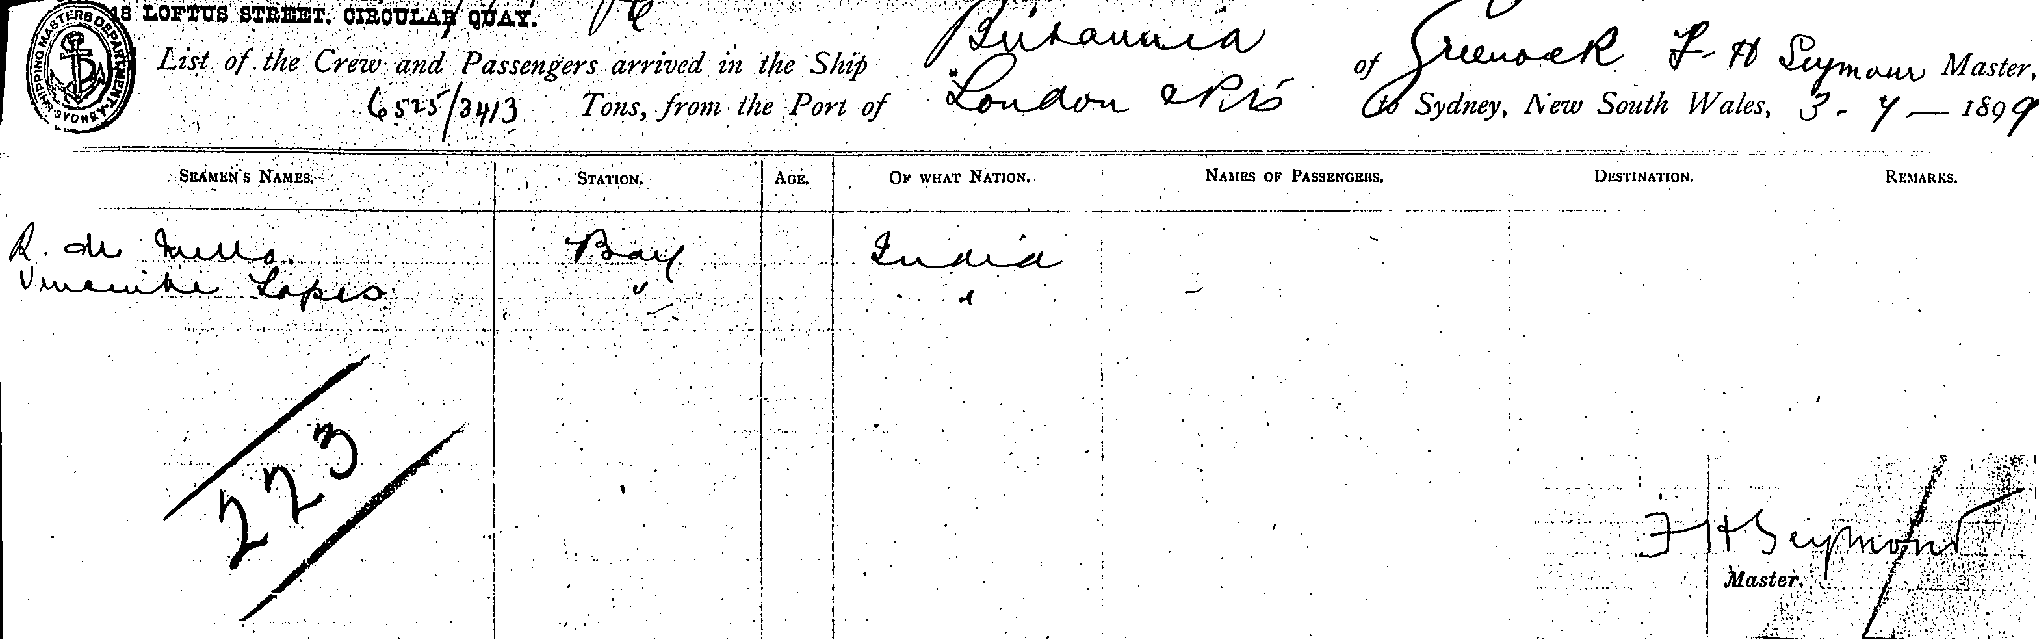 18 LOFTUS STREET, CIRCULAR QUAY.
SHIPPING MASTERS DEPARTMENT SYDNEY
List of the Crew and Passengers arrived in the Ship Britannia of Greenock F H Seymour Master,
6525/3413 Tons, from the Port of London & Pts to Sydney, New South Wales, 3 - 7 — 1899
SEAMEN'S NAMES. STATION. AGE. OF WHAT NATION. NAMES OF PASSENGERS. DESTINATION. REMARKS.
R. de Mello. Boy India
Lopes " "
223
F H Seymour
Master.